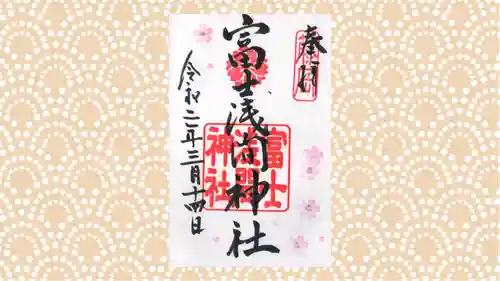 奉拝
富士浅間神社
富士
浅間
神社
令和二年三月十四日